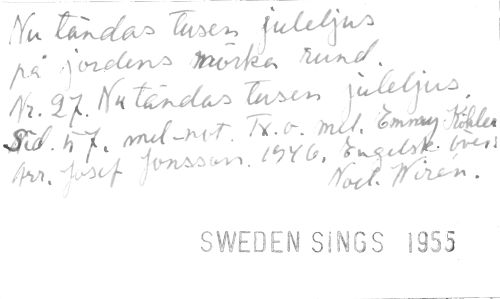 Nu tändas tusen juleljus
på jordens mörka rund.
Nr. 27. Nu tändas tusen juleljus.
Sid. 57. mel-not. Tx. o. mel. Emmy Köhler
Arr. Josef Jonsson. 1946. Engelsk. övers
Noel. Wirén.
SWEDEN SINGS 1955